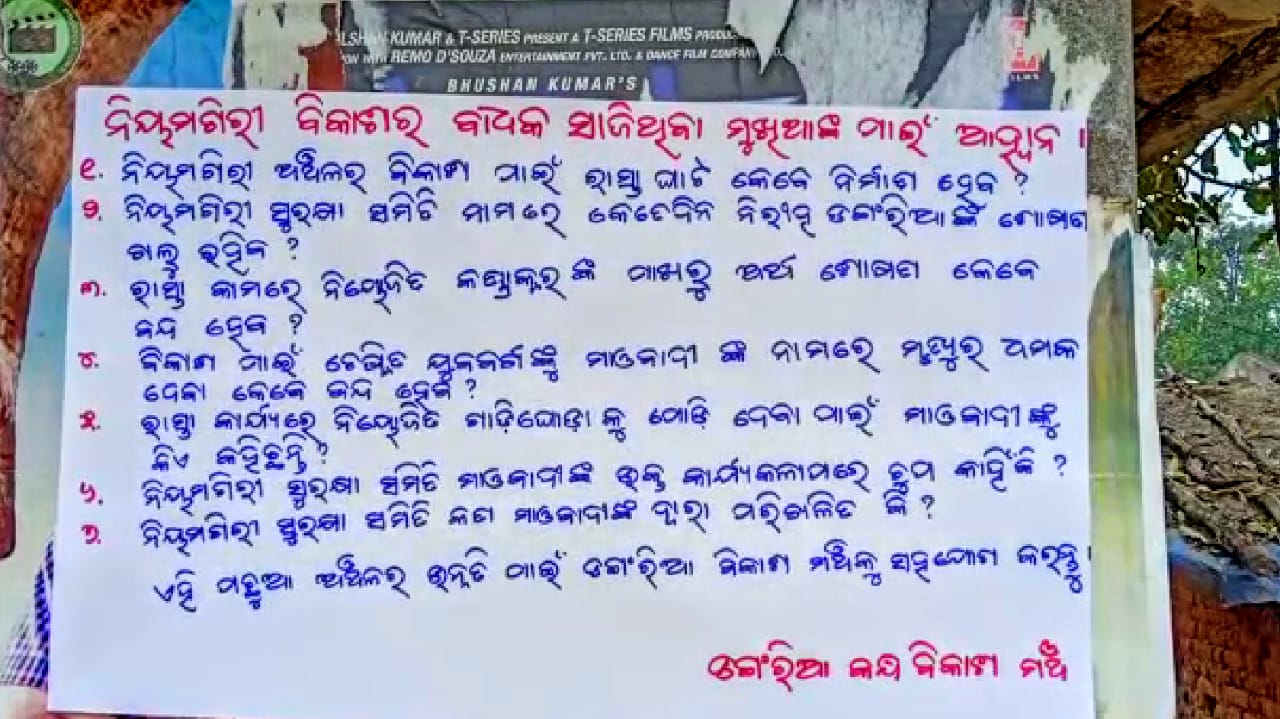 LSHAN KUMAR & T-SERIES PRESENT A T-SERIES FILMS PRODUC
ON WITH REMO D'SOUZA ENTERTAINMENT PVT. LTD. & DANCE FILM COMPANY
BHUSHAN KUMAR'S
ନିୟମଗିରୀ ବିକାଶର ବାଧକ ସାଜିଥିବା ମୁଖିଆଙ୍କ ପାଇଁ ଆହ୍ୱାନ ।
୧. ନିୟମଗିରୀ ଅଞ୍ଚଳର ବିକାଶ ପାଇଁ ରାସ୍ତା ଘାଟ କେବେ ନିର୍ମାଣ ହେବ ?
୨. ନିୟମଗିରୀ ସୁରକ୍ଷା ସମିତି ନାମରେ କେତେଦିନ ନିରୀହ ଡଙ୍ଗରିଆଙ୍କ ଶୋଷଣ
ଚାଲୁ ରହିବ ?
୩. ରାସ୍ତା କାମରେ ନିୟୋଜିତ କଣ୍ଟ୍ରାକ୍ଟର ଙ୍କ ପାଖରୁ ଅର୍ଥ ଶୋଷଣ କେବେ
ବନ୍ଦ ହେବ ?
୪. ବିକାଶ ପାଇଁ ଚେଷ୍ଟିତ ଯୁବବର୍ଗ ଙ୍କୁ ମାଓବାଦୀ ଙ୍କ ନାମରେ ମୃତ୍ୟୁର ଧମକ
ଦେବା କେବେ ବନ୍ଦ ହେବ ?
୫. ରାସ୍ତା କାର୍ଯ୍ୟରେ ନିୟୋଜିତ ଗାଡ଼ିଘୋଡ଼ା କୁ ପୋଡ଼ି ଦେବା ପାଇଁ ମାଓବାଦୀ ଙ୍କୁ
କିଏ କହିଛନ୍ତି ?
୬. ନିୟମଗିରୀ ସୁରକ୍ଷା ସମିତି ମାଓବାଦୀଙ୍କ ଉକ୍ତ କାର୍ଯ୍ୟକଳାପରେ ଚୁପ କାହିଁକି ?
୭. ନିୟମଗିରୀ ସୁରକ୍ଷା ସମିତି କଣ ମାଓବାଦୀଙ୍କ ଦ୍ୱାରା ପରିଚାଳିତ କି ?
ଏହି ପଛୁଆ ଅଞ୍ଚଳର ଉନ୍ନତି ପାଇଁ ଡଙ୍ଗରିଆ ବିକାଶ ମଞ୍ଚକୁ ସହଯୋଗ କରନ୍ତୁ ।
ଡଙ୍ଗରିଆ କନ୍ଧ ବିକାଶ ମଞ୍ଚ